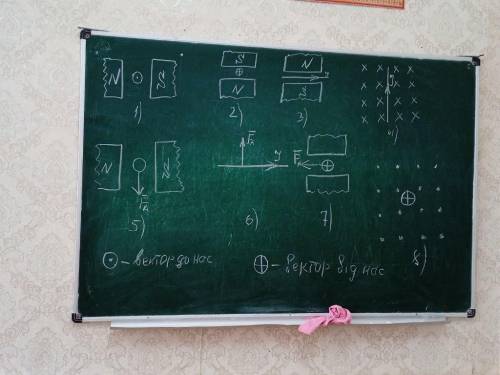 N S
1)
S
N
2)
N
S
3)
4)
N
5)
6)
7)
8)
⊙ – вектор до нас
⊕ – вектор від нас